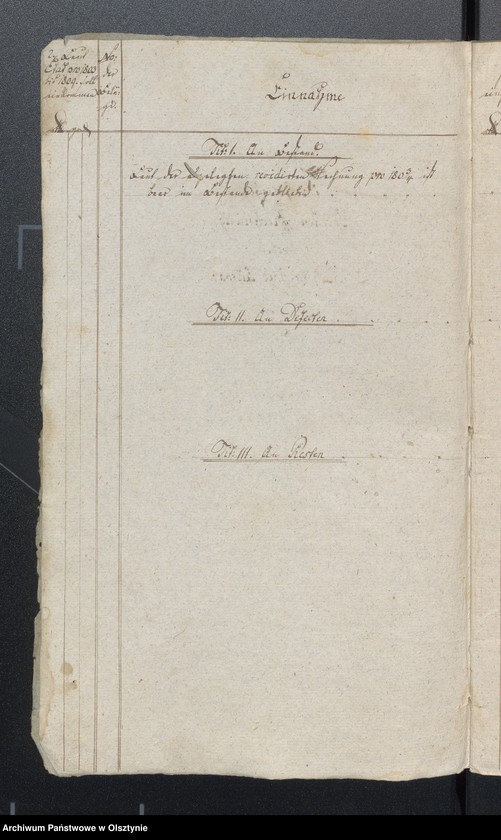 Laut
Etat pro 1803
bis 1809. soll
einkommen
No:
der
Bela-
ge.
Einnahme
Tit: I. An Bestand.
Laut der abgelegten revidirten Rechnung pro 180 ist
baar im Bestande geblieben
Tit: II. An Defecten
Tit: III. An Resten
Archiwum Państwowe w Olsztynie